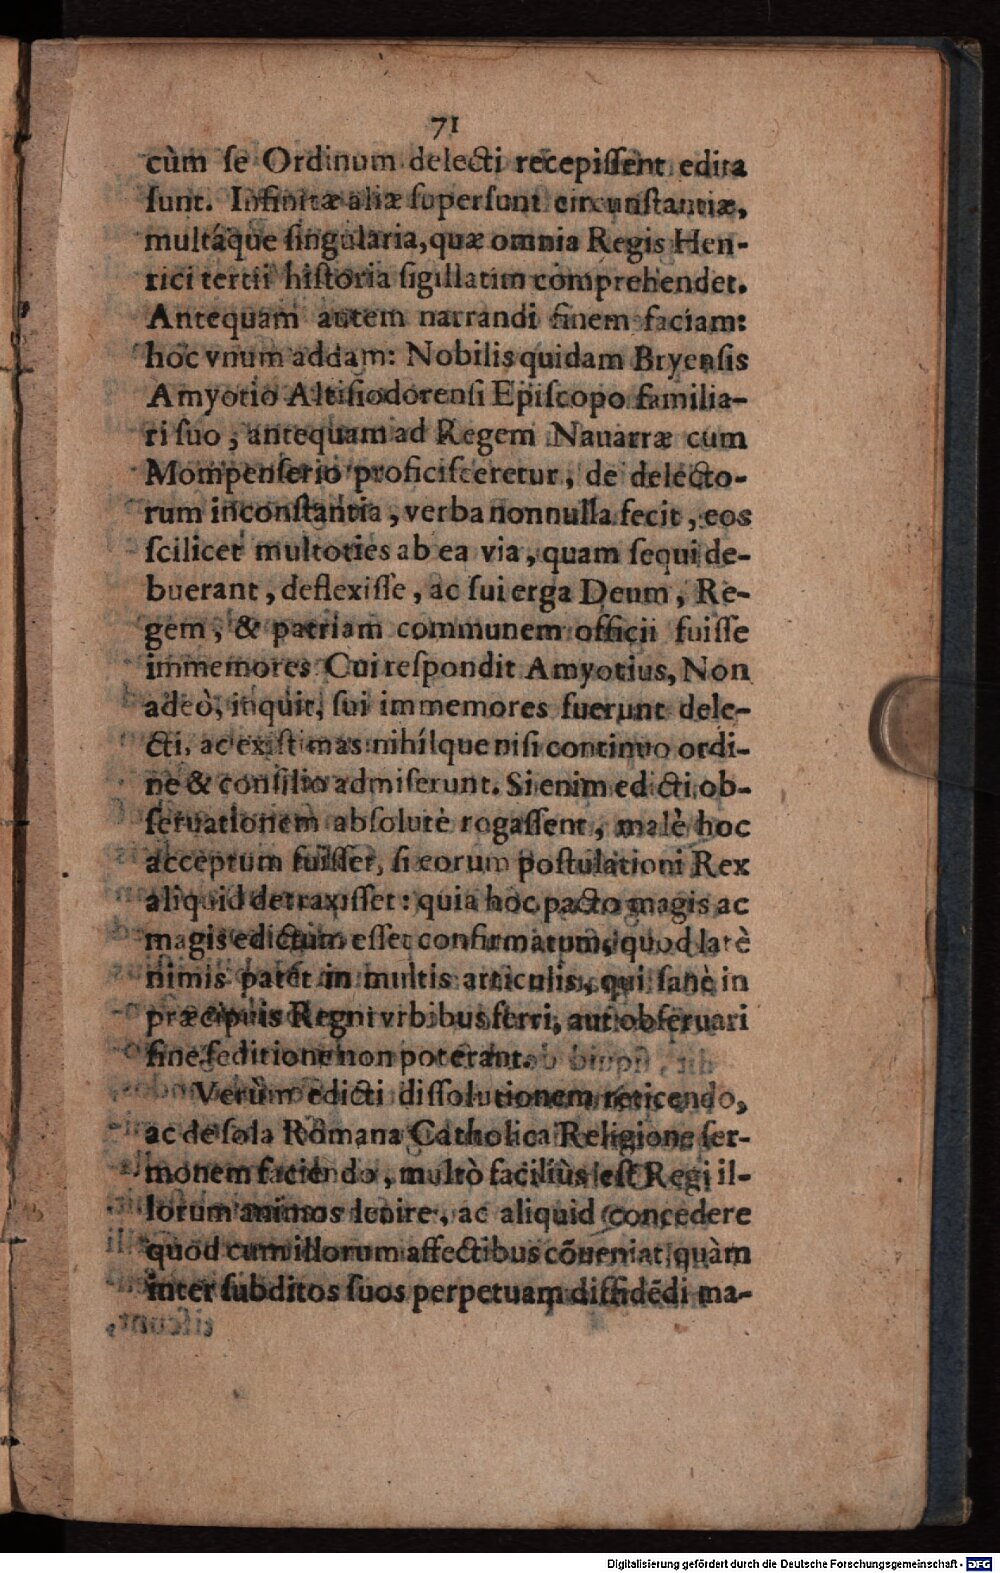 71
cùm ſe Ordinum delecti recepiſſent edita
ſunt. Infinitæ aliæ ſuperſunt circunſtantiæ,
multáque ſingularia, quæ omnia Regis Hen-
rici tertii hiſtoria ſigillatim comprehendet.
Antequam autem narrandi finem faciam:
hoc vnum addam: Nobilis quidam Bryenſis
Amyotio Altiſiodorenſi Epiſcopo familia-
ri ſuo, antequam ad Regem Nauarræ cum
Mompenſerio proficiſceretur, de delecto-
rum inconſtantia, verba nonnulla fecit, eos
ſcilicet multoties ab ea via, quam ſequi de-
buerant, deflexiſſe, ac ſui erga Deum, Re-
gem, & patriam communem officii fuiſſe
immemores Cui reſpondit Amyotius, Non
adeò, inquit, ſui immemores fuerunt dele-
cti, ac exiſtimas nihílque niſi continuo ordi-
ne & conſilio admiſerunt. Si enim edicti ob-
ſeruationem abſolutè rogaſſent, malè hoc
acceptum fuiſſet, ſi eorum poſtulationi Rex
aliquid detraxiſſet: quia hoc pacto magis ac
magis edictum eſſet confirmatum, quod latè
nimis patet in multis articulis, qui ſanè in
præcipuis Regni vrbibus ferri, aut obſeruari
ſine ſeditione non poterant.
Verùm edicti diſſolutionem reticendo,
ac de ſola Romana Catholica Religione ſer-
monem faciendo, multò faciliùs eſt Regi il-
lorum animos lenire, ac aliquid concedere
quod cum illorum affectibus cõueniat, quàm
inter ſubditos ſuos perpetuam diſſidẽdi ma-
Digitalisierung gefördert durch die Deutsche Forschungsgemeinschaft - DFG